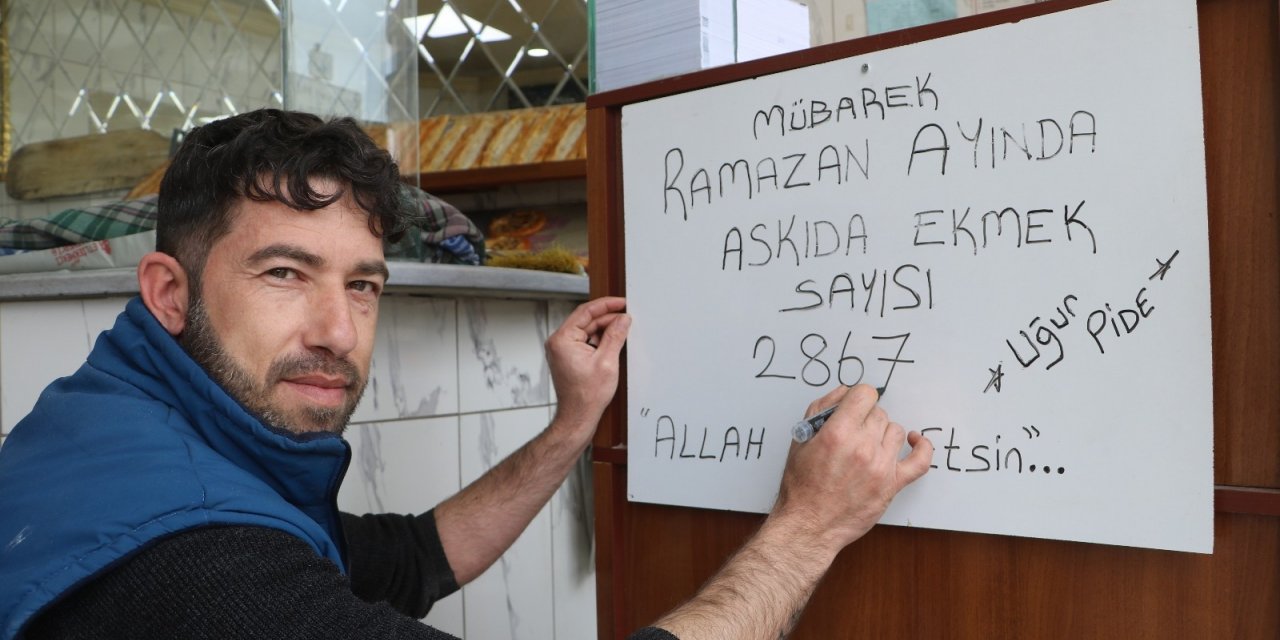 MÜBAREK
RAMAZAN AYINDA
ASKIDA EKMEK
SAYISI
2867
* Uğur
PİDE *
"ALLAH Etsin"...